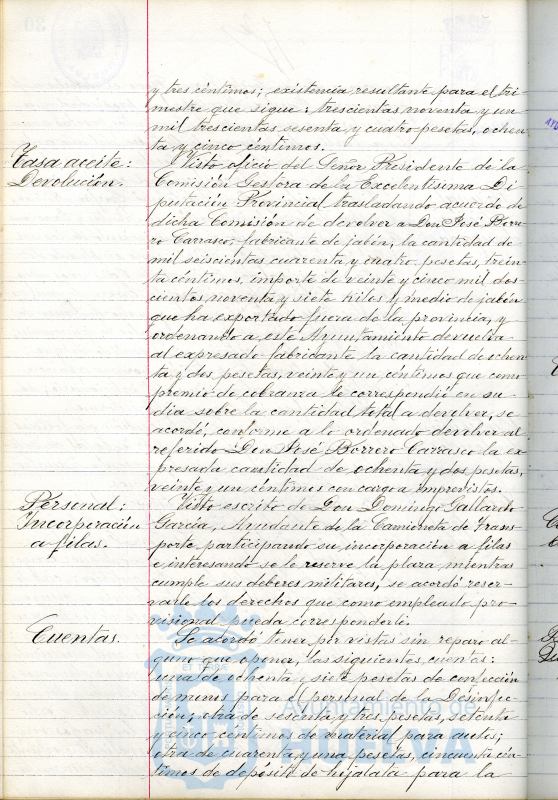 y tres céntimos; existencia resultante para el tri-
mestre que sigue: trescientas noventa y un
mil trescientas sesenta y cuatro pesetas, ochen-
ta y cinco céntimos.
Tasa aceite:
Devolución.
Visto oficio del Señor Presidente de la
Comisión Gestora de la Excelentísima Di-
putación Provincial trasladando acuerdo de
dicha Comisión de devolver a Don José Borre-
ro Carrasco, fabricante de jabón, la cantidad de
mil seiscientas cuarenta y cuatro pesetas, trein-
ta céntimos, importe de veinte y cinco mil dos-
cientos noventa y siete kilos y medio de jabón
que ha exportado fuera de la provincia, y
ordenando a este Ayuntamiento devuelva
al expresado fabricante la cantidad de ochen-
ta y dos pesetas, veinte y un céntimos que como
premio de cobranza le correspondió en su
dia sobre la cantidad total a devolver, se
acordó, conforme a lo ordenado devolver al
referido Don José Borrero Carrasco la ex-
presada cantidad de ochenta y dos pesetas,
veinte y un céntimos con cargo a imprevistos.
Personal:
Incorporación
a filas.
Visto escrito de Don Domingo Gallardo
García, Ayudante de la Camioneta de Trans-
porte, participando su incorporación a filas
e interesando se le reserve la plaza mientras
cumple sus deberes militares, se acordó reser-
varle los derechos que como empleado pro-
visional pueda corresponderle.
Cuentas.
Se acordó tener por vistas sin reparo al-
guno que oponer, las siguientes cuentas:
una de ochenta y siete pesetas de confección
de monos para el personal de la Desinfec-
ción; otra de sesenta y tres pesetas, setenta
y cinco céntimos de material para autos;
otra de cuarenta y una pesetas, cincuenta cén-
timos de depósito de hojalata para la
Ayuntamiento de
HUELVA